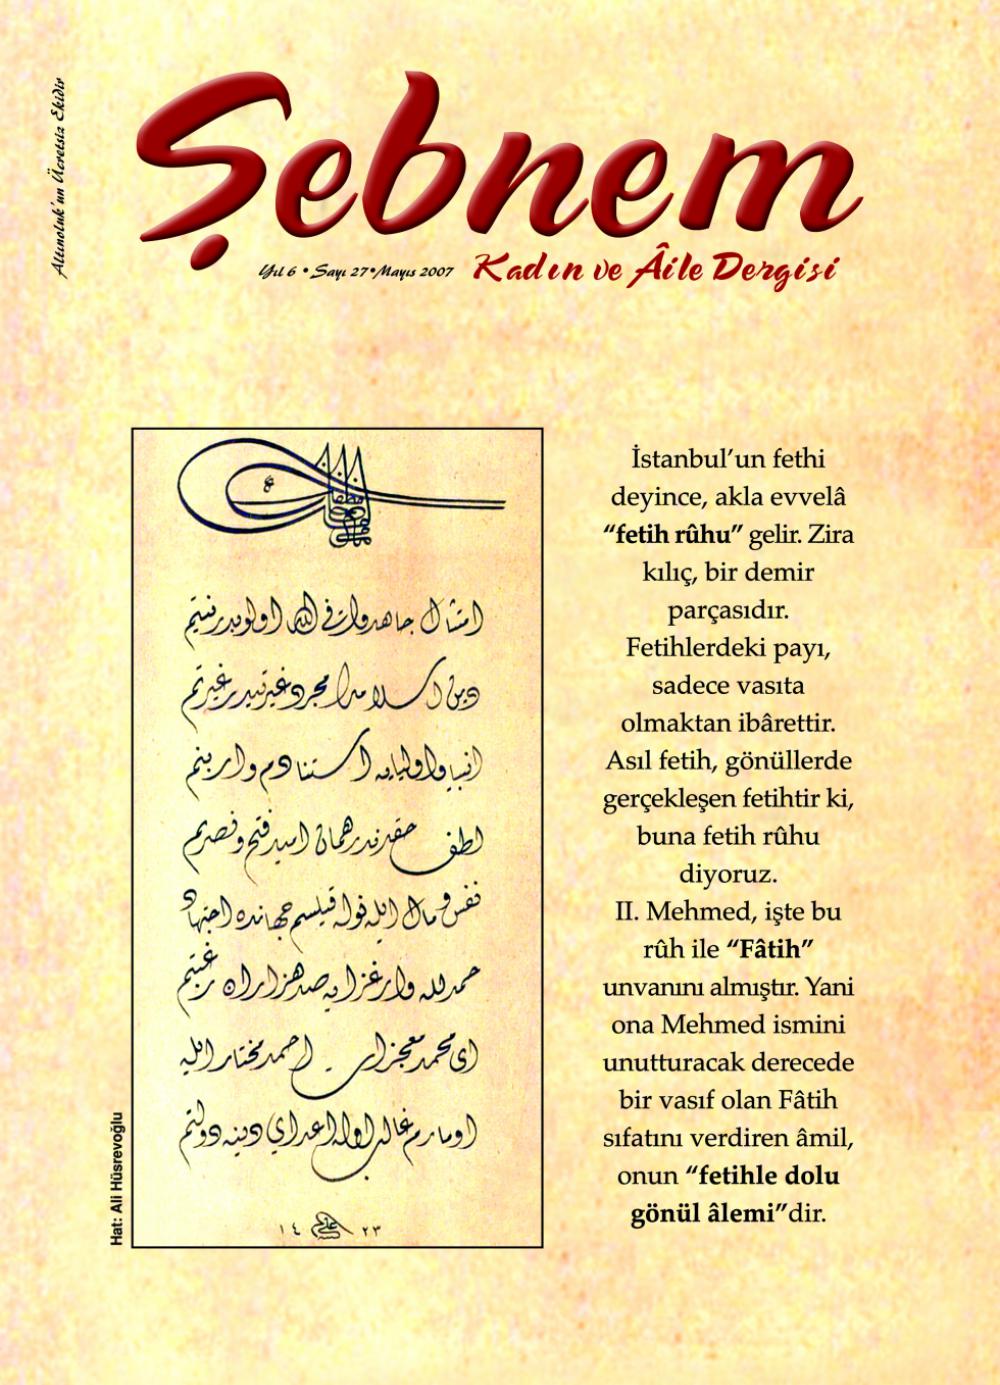 Altınoluk'un Ücretsiz Ekidir
Şebnem
Yıl 6 • Sayı 27 • Mayıs 2007
Kadın ve Âile Dergisi
امتثال جاهدوا فی الله اولوبدر نیتم
دین اسلامك مجرد غیرتیدر غیرتم
انبیا و اولیایه استنادم وار بنم
لطف حقدندر همان امید فتح و نصرتم
نفس و مال ایله نوله قیلسم جهانده اجتهاد
حمدلله وار غزایه صد هزاران رغبتم
ای محمد معجزات احمد مختار ایله
اومارم غالب اوله اعدای دینه دولتم
١٤٢٣
Hat: Ali Hüsrevoğlu
İstanbul'un fethi
deyince, akla evvelâ
“fetih rûhu” gelir. Zira
kılıç, bir demir
parçasıdır.
Fetihlerdeki payı,
sadece vasıta
olmaktan ibârettir.
Asıl fetih, gönüllerde
gerçekleşen fetihtir ki,
buna fetih rûhu
diyoruz.
II. Mehmed, işte bu
rûh ile “Fâtih”
unvanını almıştır. Yani
ona Mehmed ismini
unutturacak derecede
bir vasıf olan Fâtih
sıfatını verdiren âmil,
onun “fetihle dolu
gönül âlemi”dir.